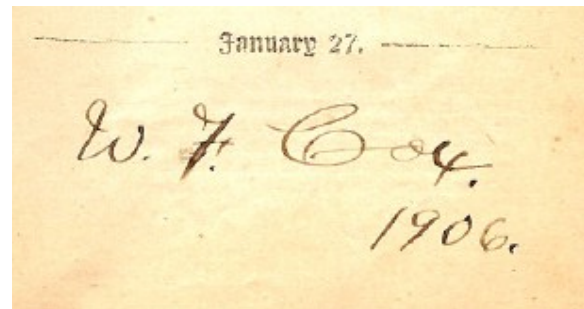 January 27.
W. F. Cox.
1906.